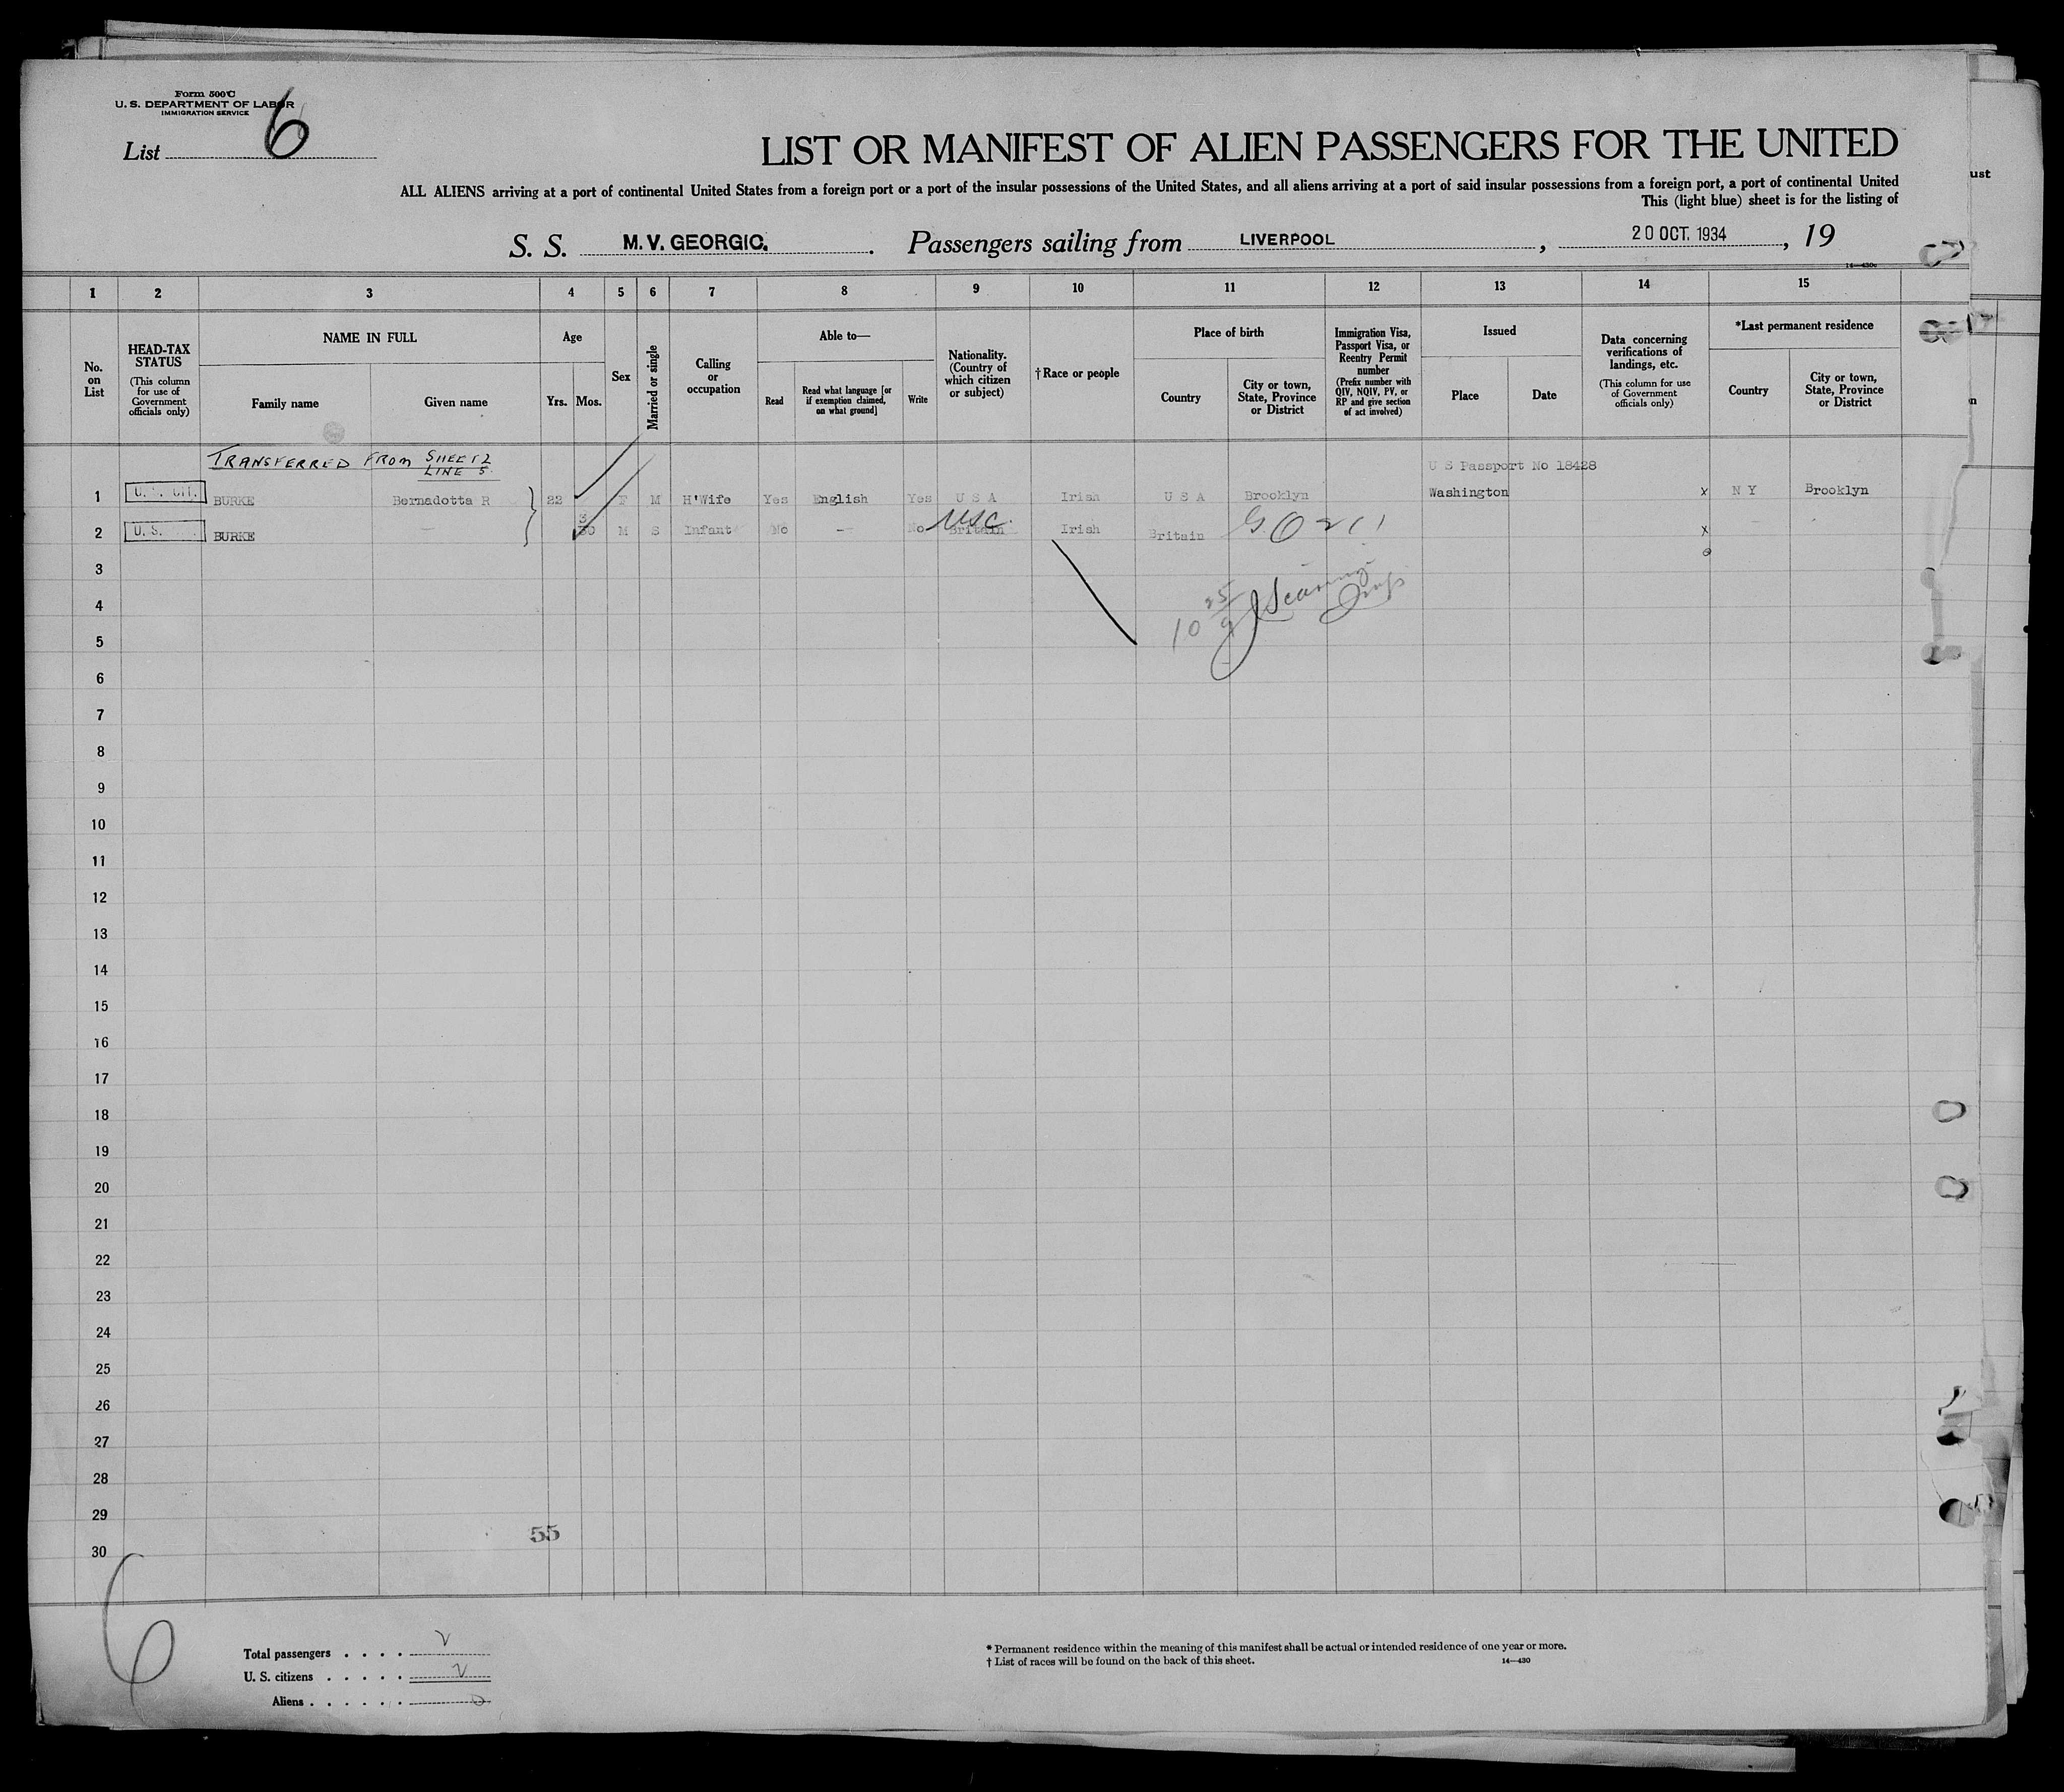 Form 500C
U. S. DEPARTMENT OF LABOR
IMMIGRATION SERVICE
List 6
LIST OR MANIFEST OF ALIEN PASSENGERS FOR THE UNITED
ALL ALIENS arriving at a port of continental United States from a foreign port or a port of the insular possessions of the United States, and all aliens arriving at a port of said insular possessions from a foreign port, a port of continental United
This (light blue) sheet is for the listing of
S. S. M.V. GEORGIC. Passengers sailing from LIVERPOOL, 20 OCT. 1934, 19
14—430c
1 2 3 4 5 6 7 8 9 10 11 12 13 14 15
No. on List
HEAD-TAX STATUS
(This column for use of Government officials only)
NAME IN FULL
Family name
Given name
Age
Yrs. Mos.
Sex
Married or single
Calling or occupation
Able to—
Read
Read what language [or if exemption claimed, on what ground]
Write
Nationality. (Country of which citizen or subject)
†Race or people
Place of birth
Country
City or town, State, Province or District
Immigration Visa, Passport Visa, or Reentry Permit number
(Prefix number with QIV, NQIV, PV, or RP and give section of act involved)
Issued
Place
Date
Data concerning verifications of landings, etc.
(This column for use of Government officials only)
*Last permanent residence
Country
City or town, State, Province or District
TRANSFERRED FROM SHEET 2 LINE 5.
U S Passport No 18428
1 U. S. CIT. BURKE Bernadotta R 22 F M H'Wife Yes English Yes U S A Irish U S A Brooklyn Washington x N Y Brooklyn
2 U. S. BURKE — 3 M S Infant No — No Britain USC. Irish Britain x
3
4
5
6
7
8
9
10
11
12
13
14
15
16
17
18
19
20
21
22
23
24
25
26
27
28
29
30
55
6
Total passengers . . . . 2
U. S. citizens . . . . . 2
Aliens . . . . . . 0
* Permanent residence within the meaning of this manifest shall be actual or intended residence of one year or more.
† List of races will be found on the back of this sheet.
14—430
ust